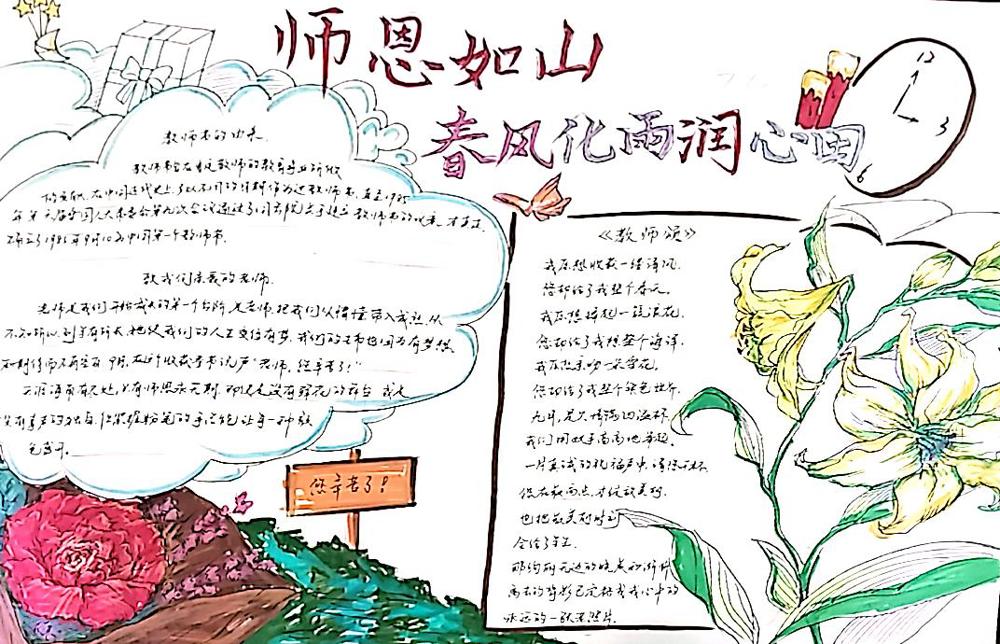 师恩如山
春风化雨润心田
12
3
6
教师节的由来
教师节旨在肯定教师的教育事业所做
的贡献。在中国近代史上，多以不同的日期作为过教师节。直至1985
年第六届全国人大常委会第九次会议通过了国务院关于建立教师节的议案，才真正
确立了1985年9月10为中国第一个教师节。
致我们亲爱的老师
老师是我们开始成长的第一个台阶，是老师，把我们从懵懂带入成熟，从
不知所以到学有所长，她使我们的人生变得有梦。我们的
9月，在这个收获季节说声"老师，您辛苦了！"
天涯海角有尽处，只有师恩无穷期。
包离开。
您辛苦了！
《教师颂》
我原想收获一缕清风，
您却给了我整个春天。
我原想捧起一簇浪花，
您却给了我整个海洋。
我原想亲吻一朵雪花，
您却给了我整个银色世界。
九月，是
我们用双手高高地举起，
一片真诚的祝福声中，请您干杯
您在最高点，才绽放美好，
也把最美好时间
全给了学生
那绚丽无边的晚霞和
高大的背影已定格我心中的
永远的一张老照片。